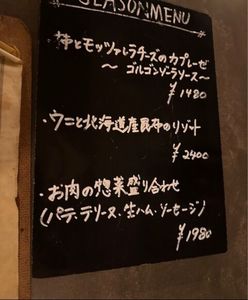 SEASONMENU
・柿とモッツァレラチーズのカプレーゼ
〜 ゴルゴンゾーラソース 〜
¥1480
・ウニと北海道産昆布のリゾット
¥2400
・お肉の惣菜盛り合わせ
(パテ、テリーヌ、生ハム、ソーセージ)
¥1980